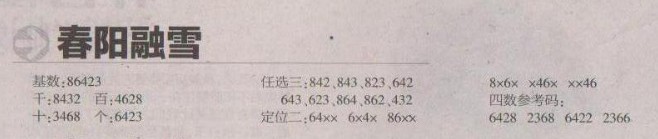 春阳融雪
基数:86423
千:8432 百:4628
十:3468 个:6423
任选三:842、843、823、642
643、623、864、862、432
定位二:64xx 6x4x 86xx
8x6x x46x xx46
四数参考码:
6428 2368 6422 2366